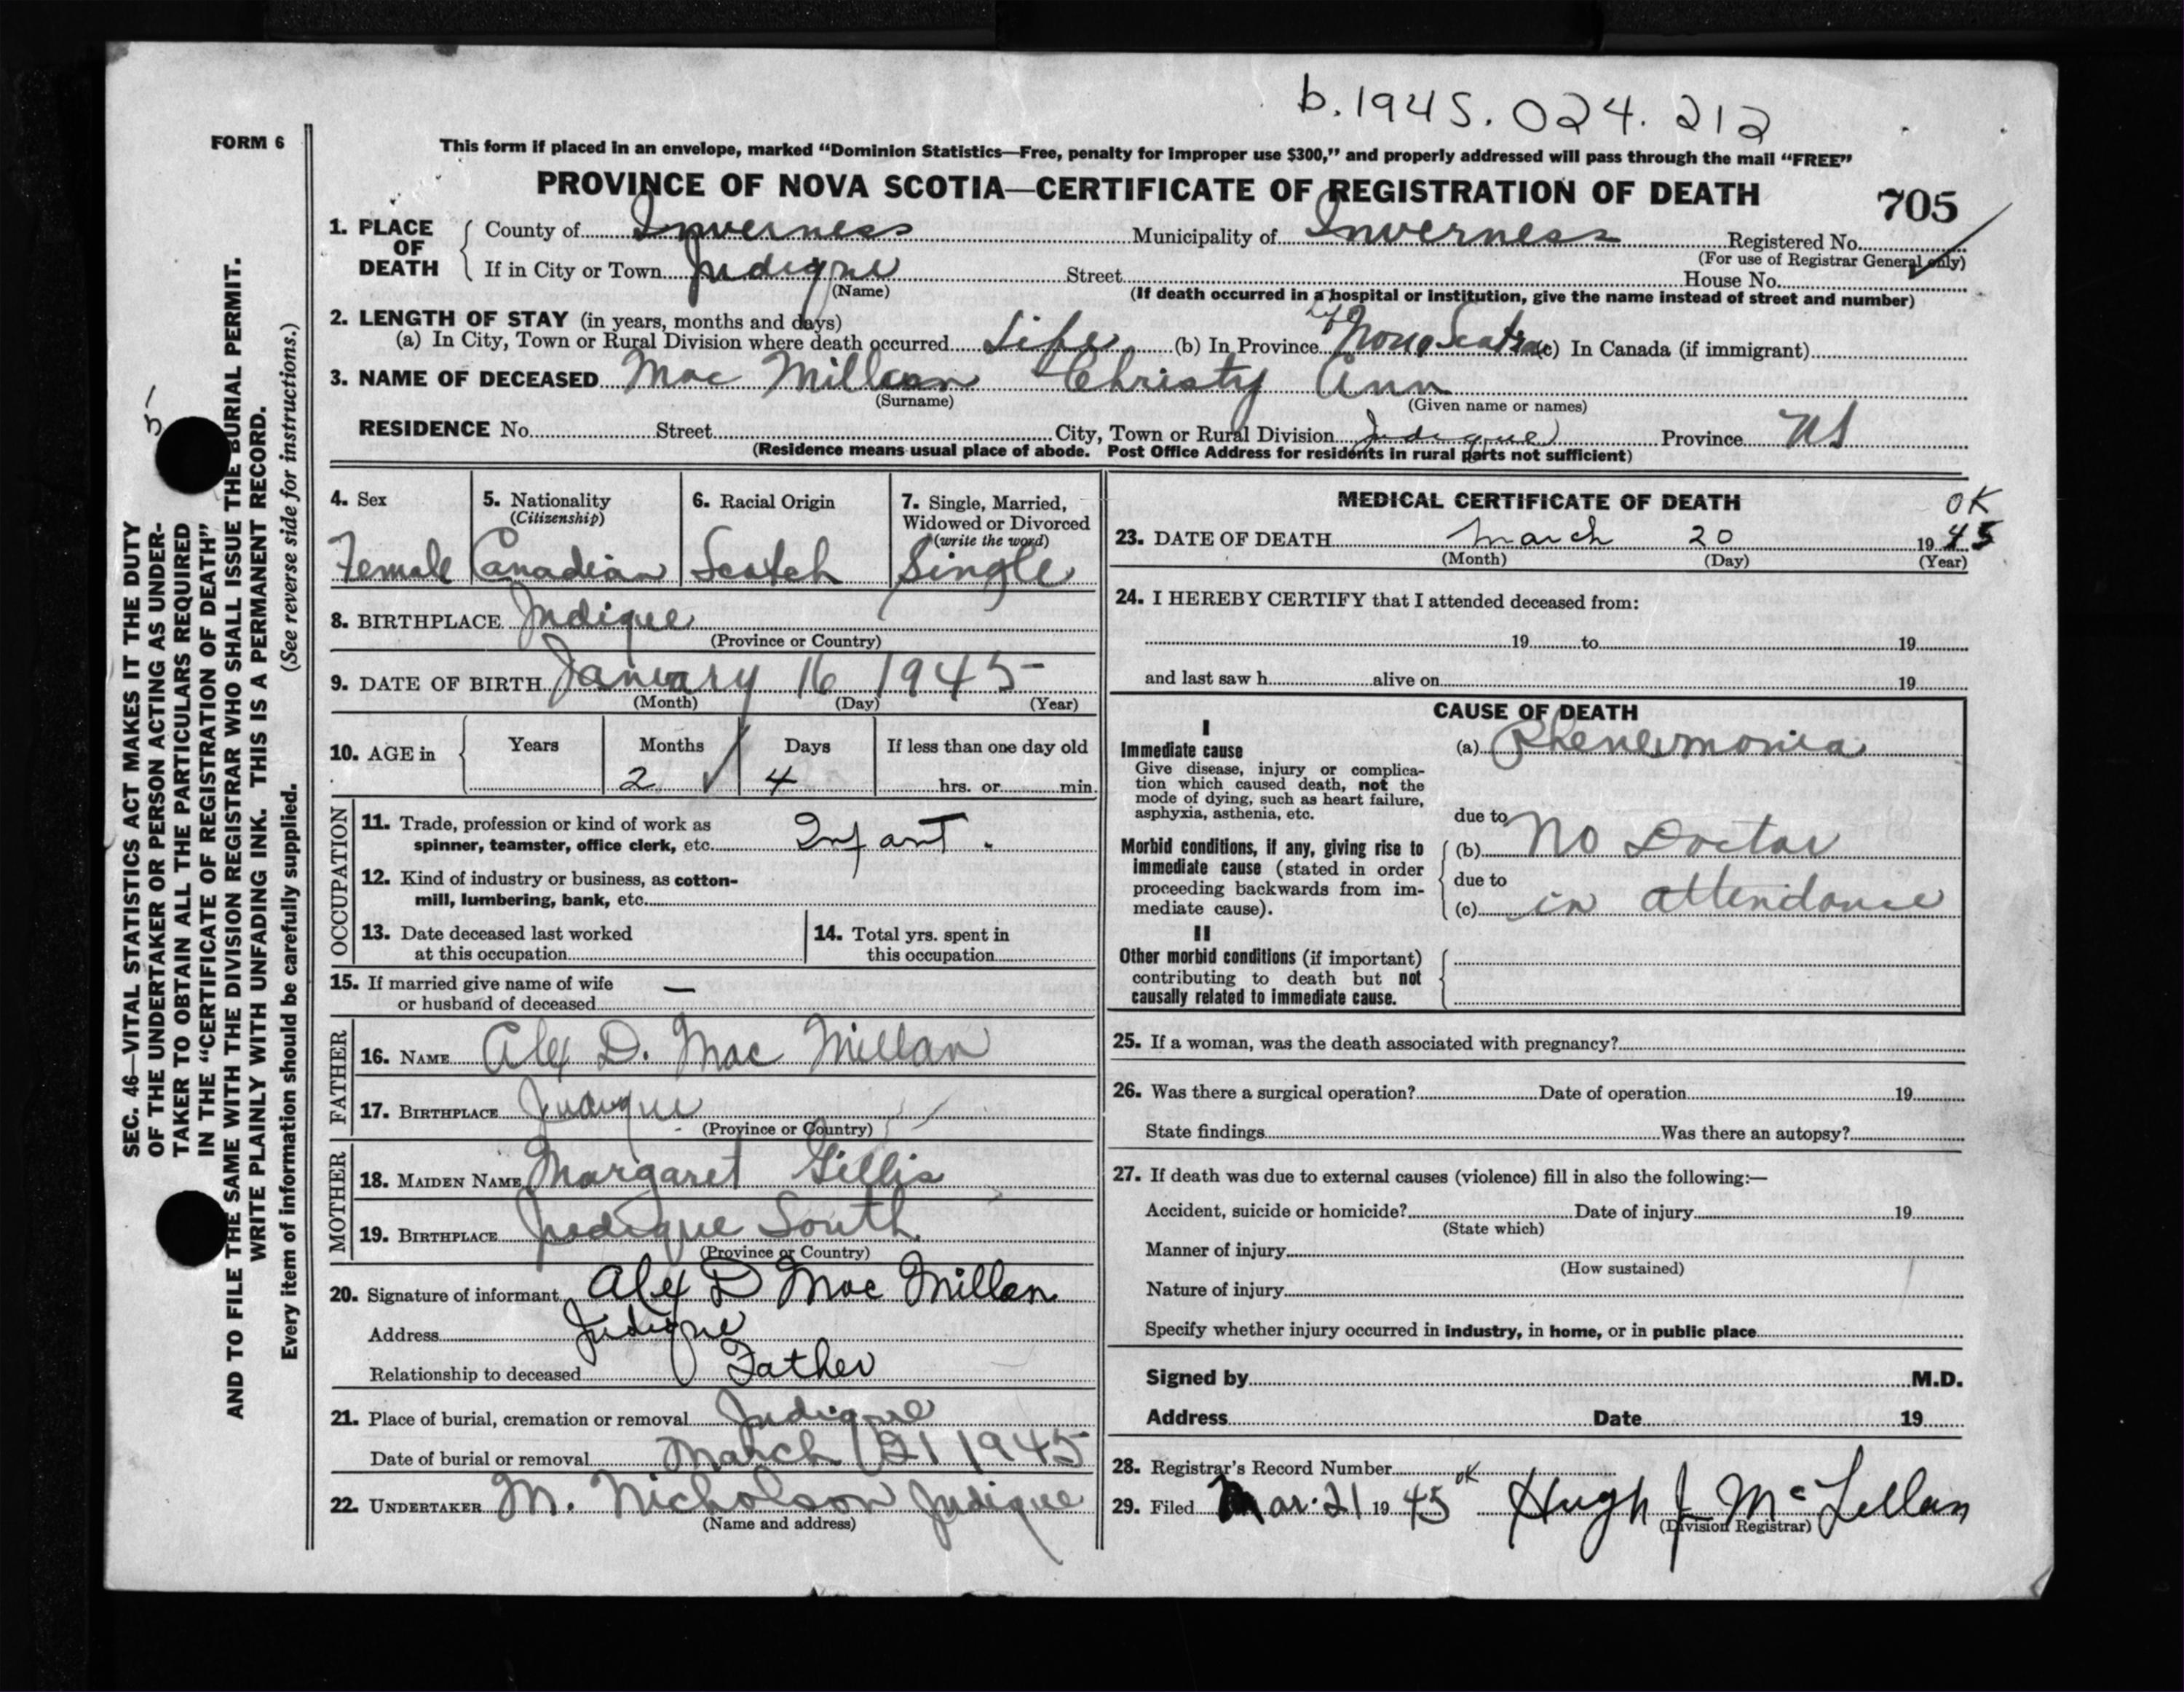 b. 1945. 024. 212
FORM 6
This form if placed in an envelope, marked "Dominion Statistics—Free, penalty for improper use $300," and properly addressed will pass through the mail "FREE"
PROVINCE OF NOVA SCOTIA—CERTIFICATE OF REGISTRATION OF DEATH
705
1. PLACE OF DEATH
County of Inverness Municipality of Inverness Registered No.
(For use of Registrar General only)
If in City or Town Judique Street House No.
(Name) (If death occurred in a hospital or institution, give the name instead of street and number)
2. LENGTH OF STAY (in years, months and days)
(a) In City, Town or Rural Division where death occurred Life (b) In Province Life Nova Scotia (c) In Canada (if immigrant)
3. NAME OF DECEASED Mac Millan Christy Ann
(Surname) (Given name or names)
RESIDENCE No. Street City, Town or Rural Division Judique Province NS
(Residence means usual place of abode. Post Office Address for residents in rural parts not sufficient)
4. Sex
Female
5. Nationality
(Citizenship)
Canadian
6. Racial Origin
Scotch
7. Single, Married,
Widowed or Divorced
(write the word)
Single
8. BIRTHPLACE Judique
(Province or Country)
9. DATE OF BIRTH January 16 1945
(Month) (Day) (Year)
10. AGE in Years Months Days If less than one day old
2 4 hrs. or min.
OCCUPATION
11. Trade, profession or kind of work as
spinner, teamster, office clerk, etc. Infant.
12. Kind of industry or business, as cotton-
mill, lumbering, bank, etc.
13. Date deceased last worked
at this occupation
14. Total yrs. spent in
this occupation
15. If married give name of wife
or husband of deceased —
FATHER
16. NAME Alex D. Mac Millan
17. BIRTHPLACE Judique
(Province or Country)
MOTHER
18. MAIDEN NAME Margaret Gillis
19. BIRTHPLACE Judique South
(Province or Country)
20. Signature of informant Alex D Mac Millan
Address Judique
Relationship to deceased Father
21. Place of burial, cremation or removal Judique
Date of burial or removal March 21 1945
22. UNDERTAKER M. Nicholson Judique
(Name and address)
MEDICAL CERTIFICATE OF DEATH
OK
23. DATE OF DEATH March 20 1945
(Month) (Day) (Year)
24. I HEREBY CERTIFY that I attended deceased from:
19 to 19
and last saw h alive on 19
CAUSE OF DEATH
I
Immediate cause
Give disease, injury or complica-
tion which caused death, not the
mode of dying, such as heart failure,
asphyxia, asthenia, etc.
(a) Pheneumonia
due to
Morbid conditions, if any, giving rise to
immediate cause (stated in order
proceeding backwards from im-
mediate cause).
(b) No Doctor
due to
(c) in attendance
II
Other morbid conditions (if important)
contributing to death but not
causally related to immediate cause.
25. If a woman, was the death associated with pregnancy?
26. Was there a surgical operation? Date of operation 19
State findings Was there an autopsy?
27. If death was due to external causes (violence) fill in also the following:—
Accident, suicide or homicide? Date of injury 19
(State which)
Manner of injury
(How sustained)
Nature of injury
Specify whether injury occurred in industry, in home, or in public place
Signed by M.D.
Address Date 19
28. Registrar's Record Number
29. Filed Mar. 21 1945 OK Hugh J McLellan
(Division Registrar)
5
SEC. 46—VITAL STATISTICS ACT MAKES IT THE DUTY
OF THE UNDERTAKER OR PERSON ACTING AS UNDER-
TAKER TO OBTAIN ALL THE PARTICULARS REQUIRED
IN THE "CERTIFICATE OF REGISTRATION OF DEATH"
AND TO FILE THE SAME WITH THE DIVISION REGISTRAR WHO SHALL ISSUE THE BURIAL PERMIT.
WRITE PLAINLY WITH UNFADING INK. THIS IS A PERMANENT RECORD.
Every item of information should be carefully supplied. (See reverse side for instructions.)